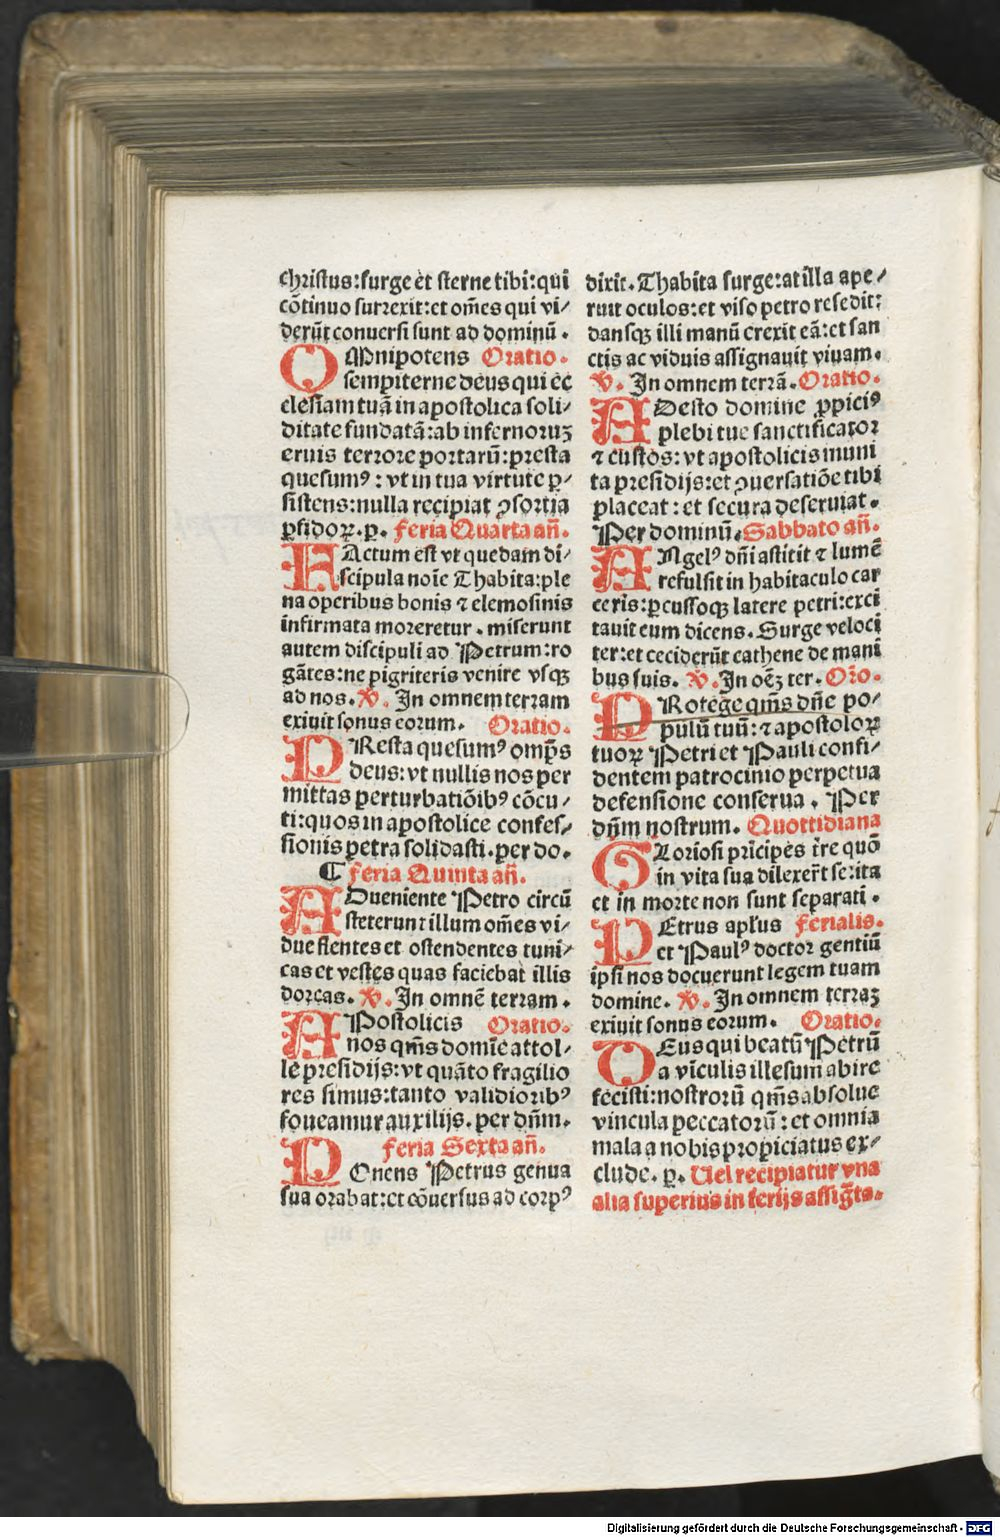 christus:surge et sterne tibi:qui
cōtinuo surrexit:et om̄es qui vi/
derūt conuersi sunt ad dominū.
OMnipotens Oratio.
sempiterne deus qui ec
clesiam tuā in apostolica soli/
ditate fundatā:ab infernoruꝫ
eruis terrore portarū:presta
quesumꝰ: vt in tua virtute ꝑ/
sistens:nulla recipiat ꝯsortia
ꝑfidoꝝ.p. feria Quarta an̄.
FActum est vt quedam di/
scipula noīe Thabita:ple
na operibus bonis ⁊ elemosinis
infirmata moreretur. miserunt
autem discipuli ad Petrum:ro
gātes:ne pigriteris venire vsqꝫ
ad nos. ℣. In omnem terram
exiuit sonus eorum. Oratio.
PResta quesumꝰ omp̄s
deus:vt nullis nos per
mittas perturbatiōibꝰ cōcu/
ti:quos in apostolice confes/
sionis petra solidasti.per do.
¶ feria Quinta an̄.
ADueniente Petro circū
steterunt illum om̄es vi/
due flentes et ostendentes tuni/
cas et vestes quas faciebat illis
dorcas. ℣. In omnē terram.
APostolicis Oratio.
nos qm̄s domīe attol/
le presidijs:vt quāto fragilio
res simus:tanto validioribꝰ
foueamur auxilijs.per dn̄m.
feria Sexta an̄.
POnens Petrus genua
sua orabat:et cōuersus ad corpꝰ
dixit. Thabita surge:at illa ape/
ruit oculos:et viso petro resedit:
dansqꝫ illi manū erexit eā:et san
ctis ac viduis assignauit viuam.
℣. In omnem terrā. Oratio.
ADesto domine ꝓpiciꝰ
plebi tue sanctificator
⁊ custos: vt apostolicis muni
ta presidijs:et ꝯuersatiōe tibi
placeat: et secura deseruiat.
Per dominū. Sabbato an̄.
ANgelꝰ dn̄i astitit ⁊ lumē
refulsit in habitaculo car
ceris:ꝑcussoqꝫ latere petri:exci
tauit eum dicens. Surge veloci
ter:et ceciderūt cathene de mani
bus suis. ℣. In oēꝫ ter. Or̄o.
PRotege qm̄s dn̄e po/
pulū tuū:⁊ apostoloꝝ
tuoꝝ Petri et Pauli confi/
dentem patrocinio perpetua
defensione conserua. Per
dn̄m nostrum. Quottidiana
GLoriosi prīcipes tr̄e quō
in vita sua dilexer̄t se:ita
et in morte non sunt separati.
PEtrus apl̄us ferialis.
et Paulꝰ doctor gentiū
ipsi nos docuerunt legem tuam
domine. ℣. In omnem terraꝫ
exiuit sonus eorum. Oratio.
DEus qui beatū Petrū
a vīculis illesum abire
fecisti:nostrorū qm̄s absolue
vincula peccatorū: et omnia
mala a nobis propiciatus ex/
clude. p. Uel recipiatur vna
alia superius in ferijs assig̅ta.
Digitalisierung gefördert durch die Deutsche Forschungsgemeinschaft - DFG